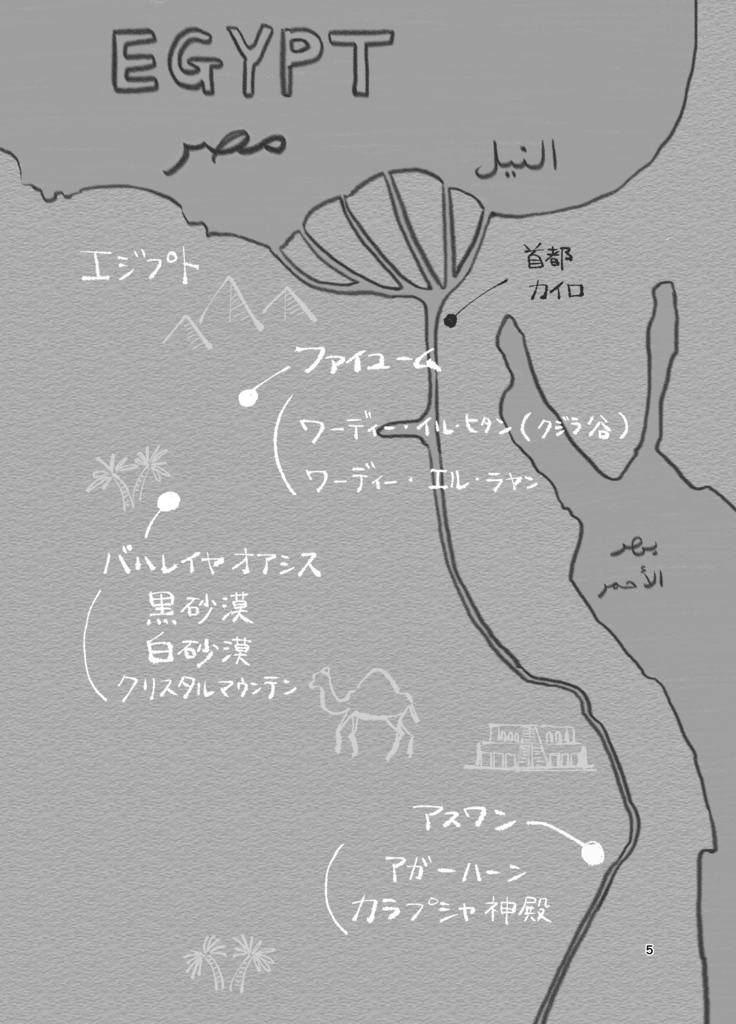 EGYPT
مصر
النيل
エジプト
首都
カイロ
ファイユーム
ワーディー・イル・ヒタン(クジラ谷)
ワーディー・エル・ラヤン
バハレイヤオアシス
黒砂漠
白砂漠
クリスタルマウンテン
بحر
الأحمر
アスワン
アガーハーン
カラプシャ神殿
5